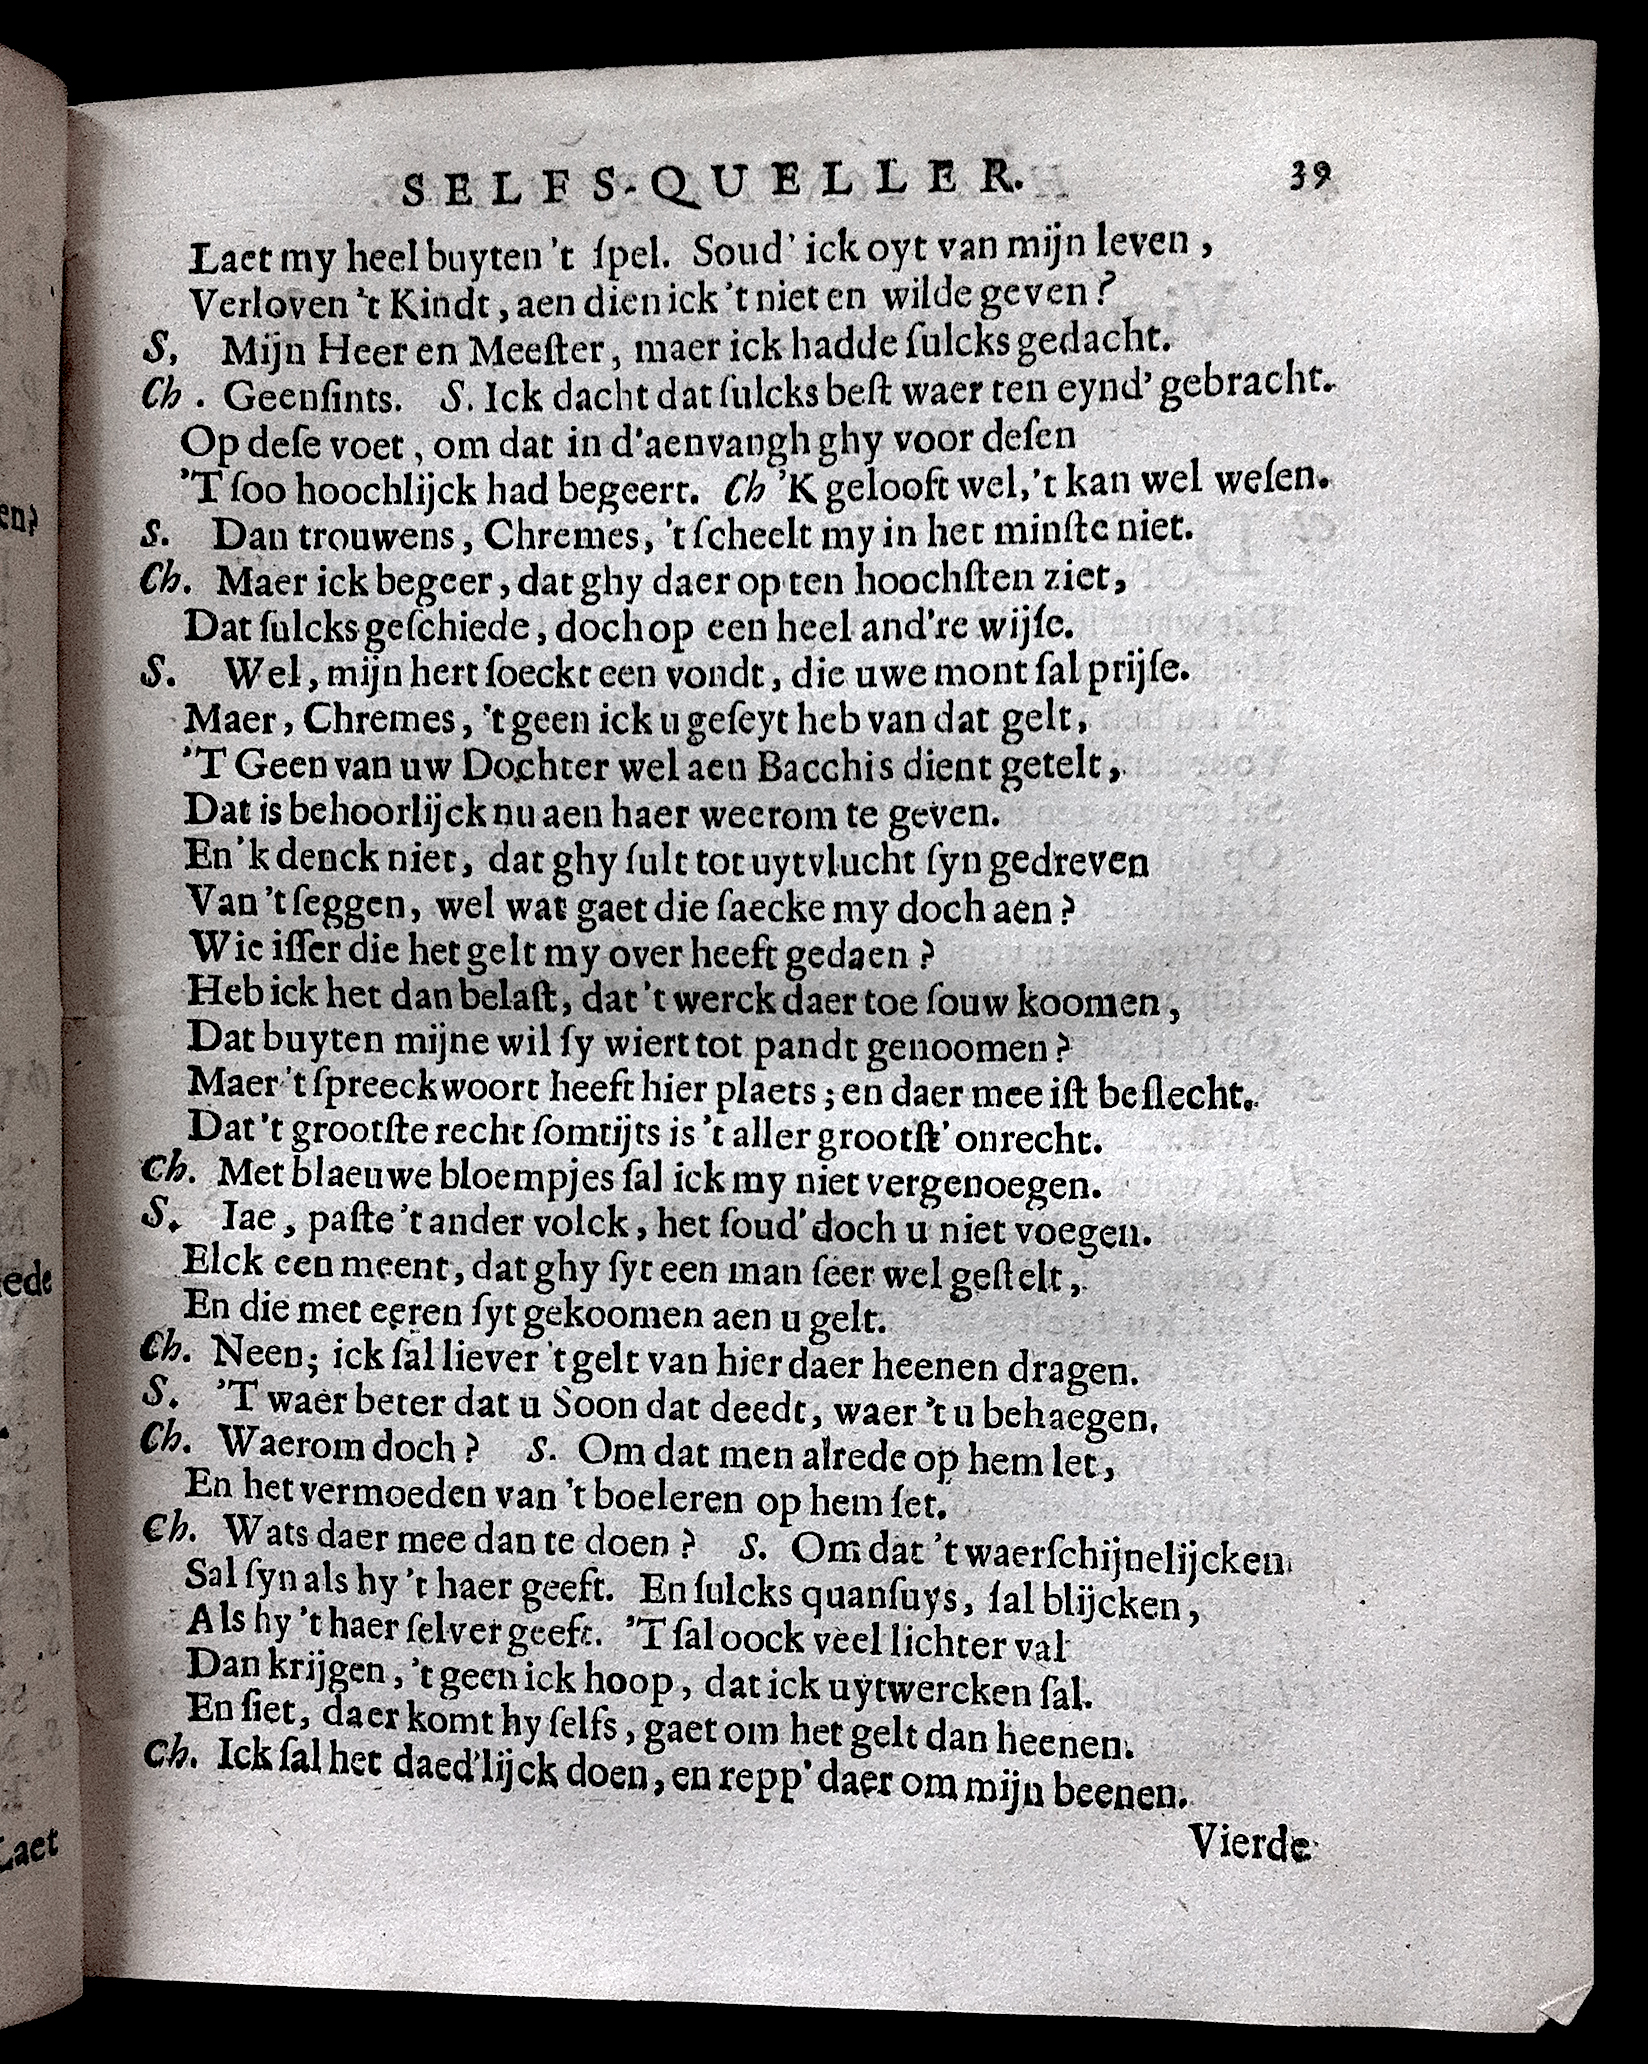 SELFS-QUELLER. 39
Laet my heel buyten 't ſpel. Soud' ick oyt van mijn leven,
Verloven 't Kindt, aen dien ick 't niet en wilde geven?
S, Mijn Heer en Meeſter, maer ick hadde ſulcks gedacht.
Ch. Geenſints. S. Ick dacht dat ſulcks beſt waer ten eynd' gebracht.
Op deſe voet, om dat in d'aenvangh ghy voor deſen
'T ſoo hoochlijck had begeert. Ch 'K gelooft wel, 't kan wel weſen.
S. Dan trouwens, Chremes, 't ſcheelt my in het minſte niet.
Ch. Maer ick begeer, dat ghy daer op ten hoochſten ziet,
Dat ſulcks geſchiede, doch op een heel and're wijſe.
S. Wel, mijn hert ſoeckt een vondt, die uwe mont ſal prijſe.
Maer, Chremes, 't geen ick u geſeyt heb van dat gelt,
'T Geen van uw Dochter wel aen Bacchis dient getelt,
Dat is behoorlijck nu aen haer weerom te geven.
En 'k denck niet, dat ghy ſult tot uytvlucht ſyn gedreven
Van 't ſeggen, wel wat gaet die ſaecke my doch aen?
Wie iſſer die het gelt my over heeft gedaen?
Heb ick het dan belaſt, dat 't werck daer toe ſouw koomen,
Dat buyten mijne wil ſy wiert tot pandt genoomen?
Maer 't ſpreeckwoort heeft hier plaets; en daer mee iſt beſlecht.
Dat 't grootſte recht ſomtijts is 't aller grootſt' onrecht.
Ch. Met blaeuwe bloempjes ſal ick my niet vergenoegen.
S. Iae, paſte 't ander volck, het ſoud' doch u niet voegen.
Elck een meent, dat ghy ſyt een man ſeer wel geſtelt,
En die met eeren ſyt gekoomen aen u gelt.
Ch. Neen; ick ſal liever 't gelt van hier daer heenen dragen.
S. 'T waer beter dat u Soon dat deedt, waer 't u behaegen.
Ch. Waerom doch? S. Om dat men alrede op hem let,
En het vermoeden van 't boeleren op hem ſet.
Ch. Wats daer mee dan te doen? S. Om dat 't waerſchijnelijcken
Sal ſyn als hy 't haer geeft. En ſulcks quanſuys, ſal blijcken,
Als hy 't haer ſelver geeft. 'T ſal oock veel lichter val
Dan krijgen, 't geen ick hoop, dat ick uytwercken ſal.
En ſiet, daer komt hy ſelfs, gaet om het gelt dan heenen.
Ch. Ick ſal het daed'lijck doen, en repp' daer om mijn beenen.
Vierde
en?
ede
Laet